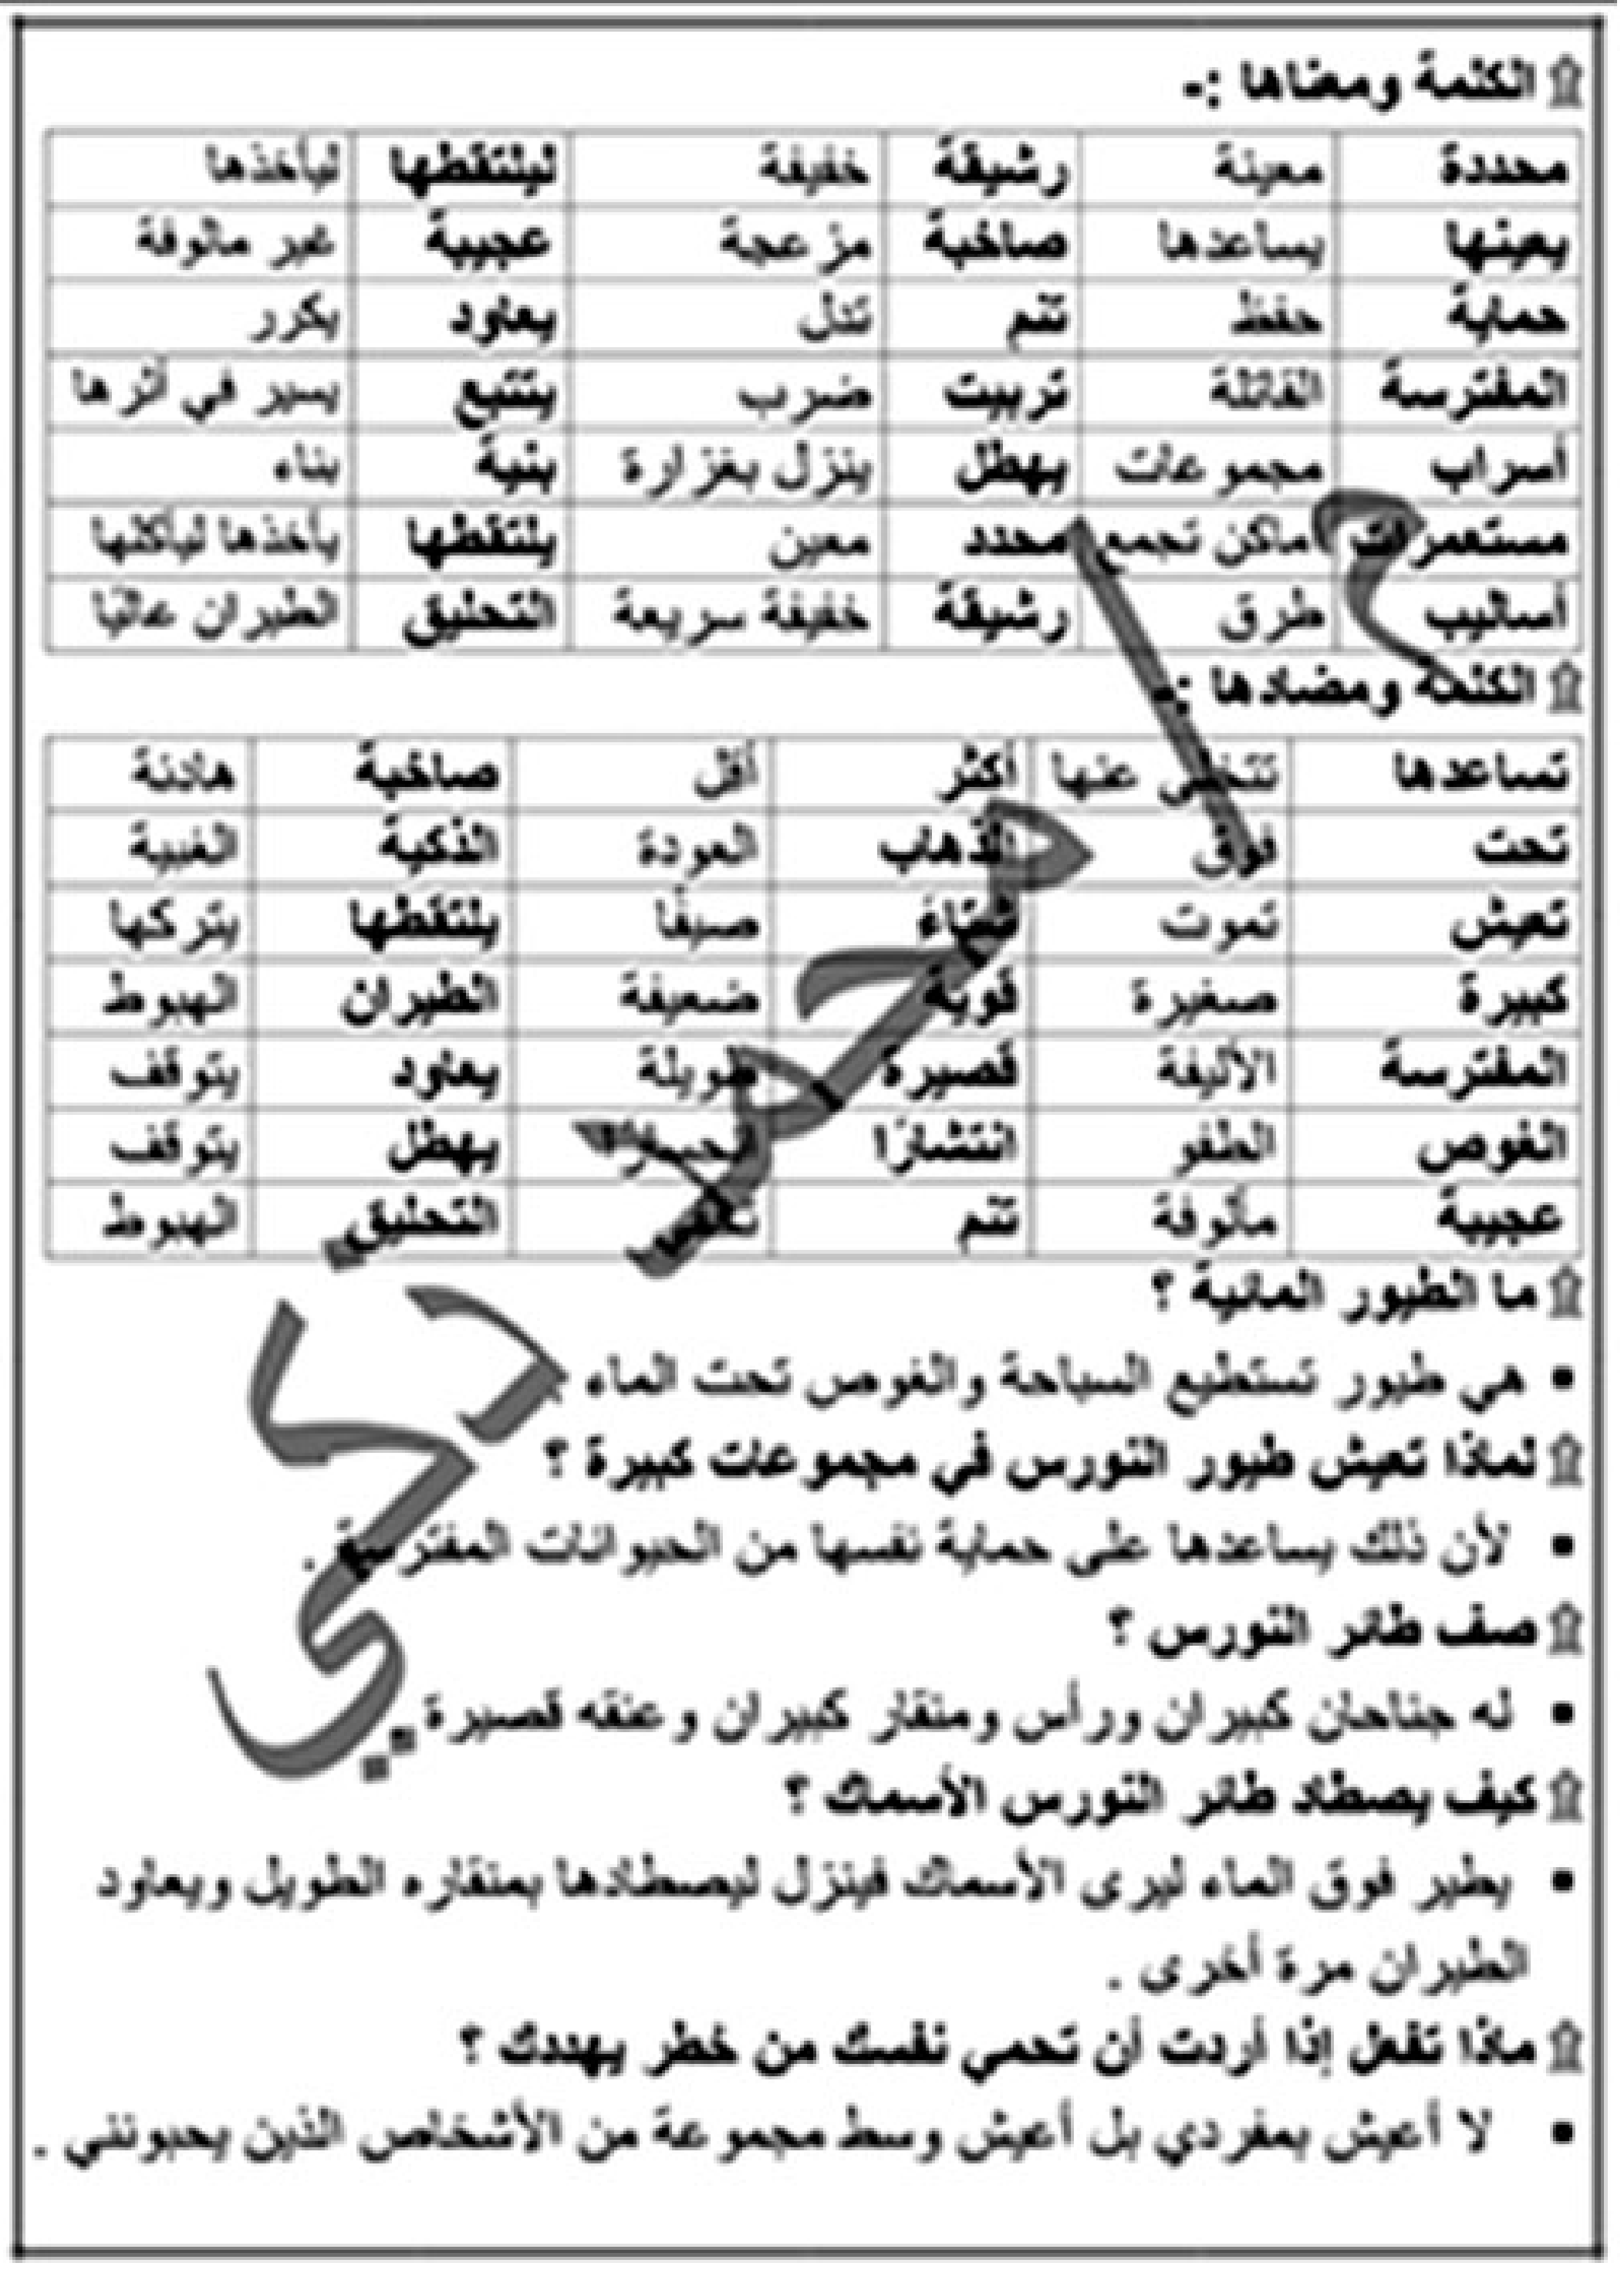 الكلمة ومعناها :-
محددة معينة رشيقة خفيفة ليلتقطها ليأخذها
يعينها يساعدها صاخبة مزعجة عجيبة غير مألوفة
حماية حفظ تنم تدل يعاود يكرر
المفترسة القاتلة تربيت ضرب يتتبع يسير في أثرها
أسراب مجموعات يهطل ينزل بغزارة بنية بناء
مستعمرات أماكن تجمع محدد معين يلتقطها يأخذها ليأكلها
أساليب طرق رشيقة خفيفة سريعة التحليق الطيران عاليًا
الكلمة ومضادها :-
تساعدها تتخلى عنها أكثر أقل صاخبة هادئة
تحت فوق الذهاب العودة الذكية الغبية
تعيش تموت شتاءً صيفًا يلتقطها يتركها
كبيرة صغيرة قوية ضعيفة الطيران الهبوط
المفترسة الأليفة قصيرة طويلة يعاود يتوقف
الغوص الطفو انتشارًا انحسارًا يهطل يتوقف
عجيبة مألوفة تنم تخفي التحليق الهبوط
ما الطيور المائية ؟
هي طيور تستطيع السباحة والغوص تحت الماء .
لماذا تعيش طيور النورس في مجموعات كبيرة ؟
لأن ذلك يساعدها على حماية نفسها من الحيوانات المفترسة .
صف طائر النورس ؟
له جناحان كبيران ورأس ومنقار كبيران وعنقه قصيرة .
كيف يصطاد طائر النورس الأسماك ؟
يطير فوق الماء ليرى الأسماك فينزل ليصطادها بمنقاره الطويل ويعاود
الطيران مرة أخرى .
ماذا تفعل إذا أردت أن تحمي نفسك من خطر يهددك ؟
لا أعيش بمفردي بل أعيش وسط مجموعة من الأشخاص الذين يحبونني .